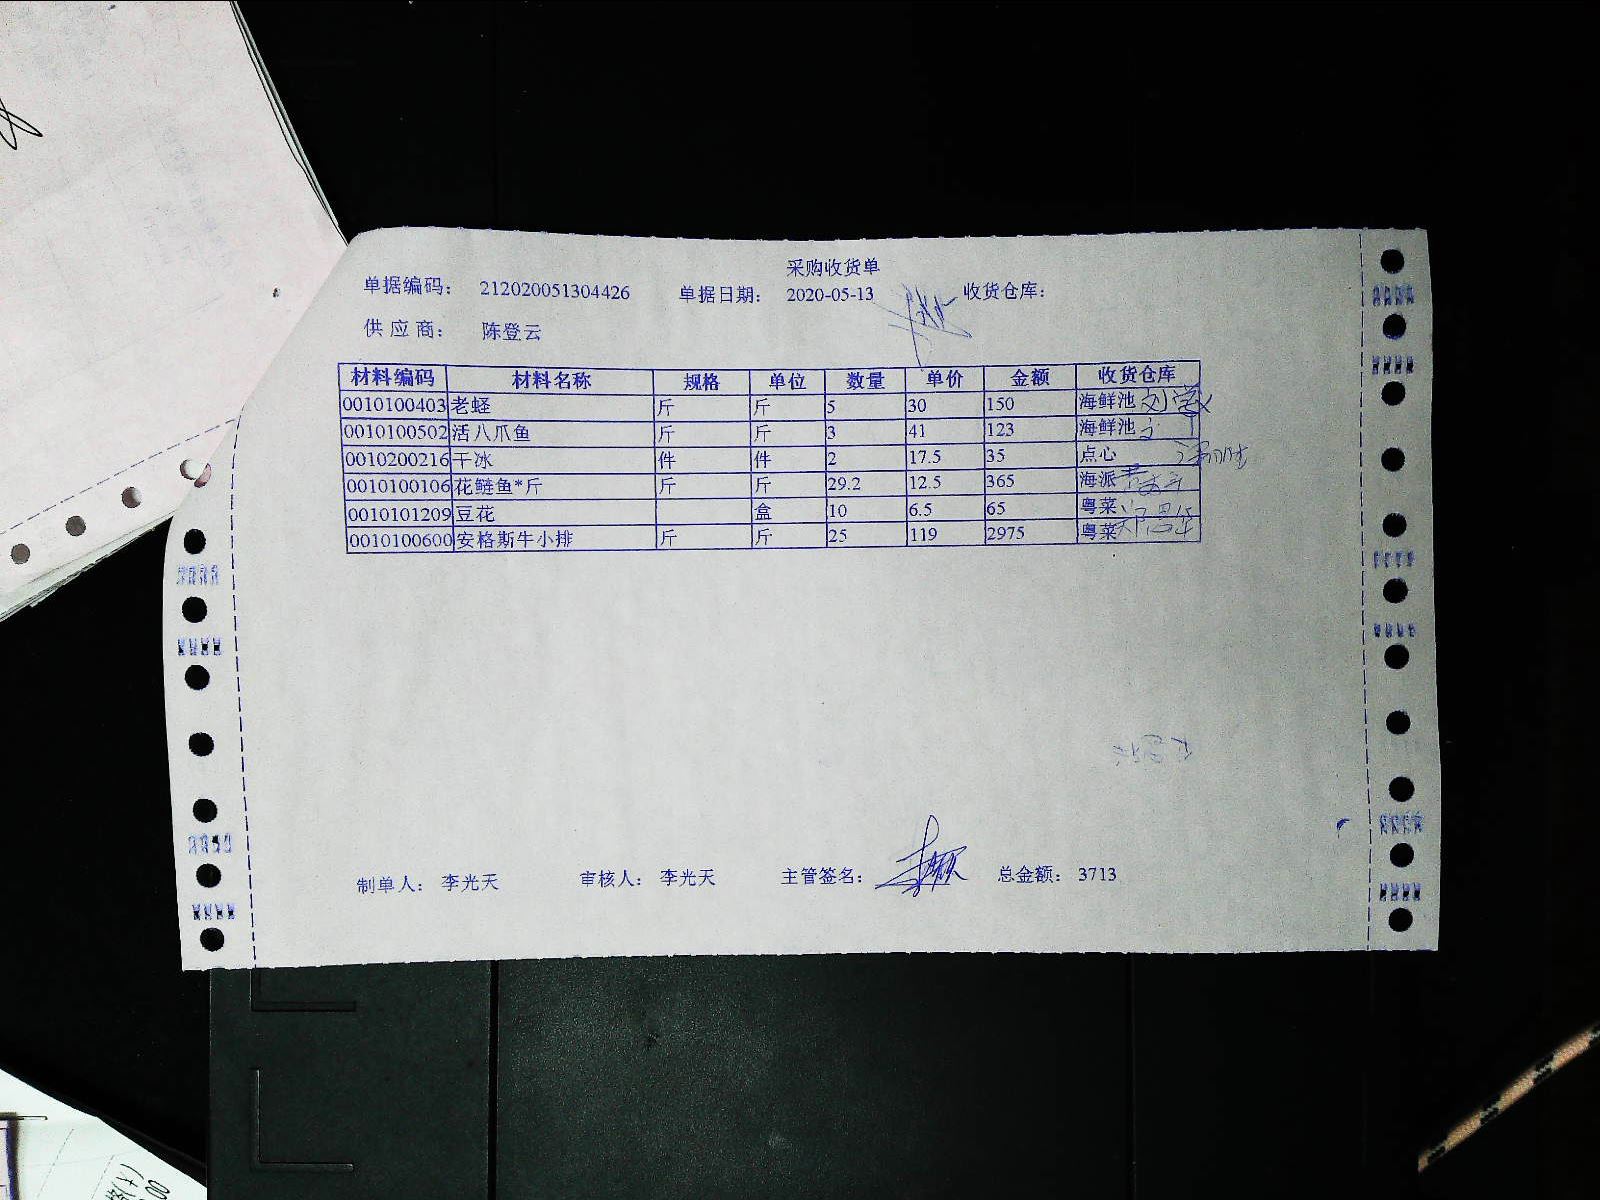 采购收货单
单据编码： 212020051304426 单据日期： 2020-05-13 收货仓库：
供应商： 陈登云
材料编码 材料名称 规格 单位 数量 单价 金额 收货仓库
0010100403 老蛏 斤 斤 5 30 150 海鲜池
0010100502 活八爪鱼 斤 斤 3 41 123 海鲜池
0010200216 干冰 件 件 2 17.5 35 点心
0010100106 花鲢鱼*斤 斤 斤 29.2 12.5 365 海派
0010101209 豆花 盒 10 6.5 65 粤菜
0010100600 安格斯牛小排 斤 斤 25 119 2975 粤菜
制单人： 李光天 审核人： 李光天 主管签名： 总金额： 3713